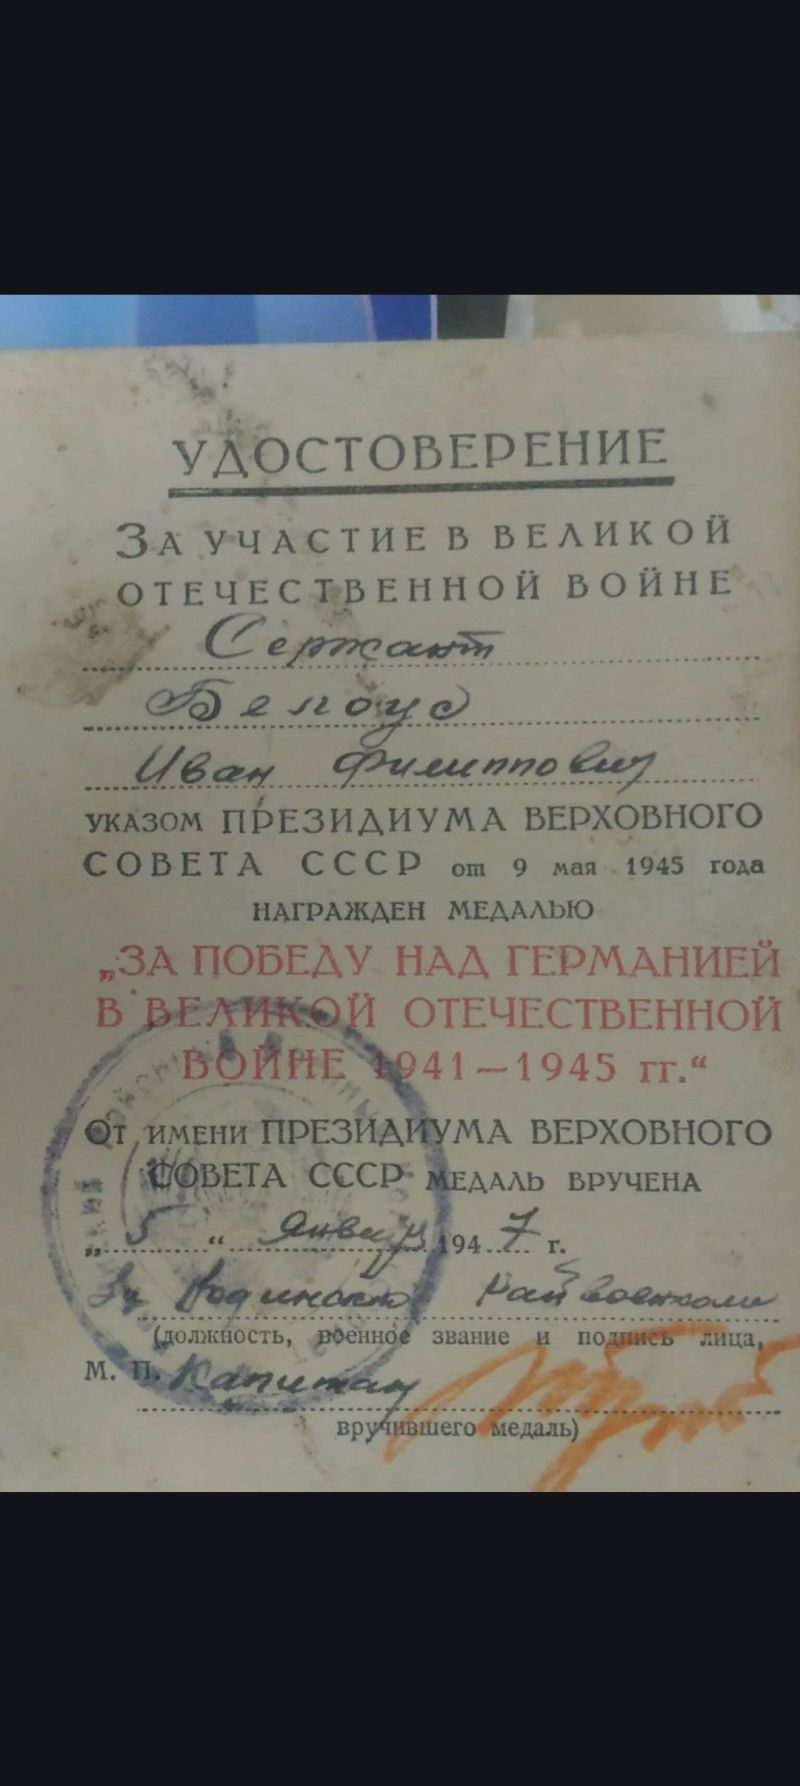 УДОСТОВЕРЕНИЕ
ЗА УЧАСТИЕ В ВЕЛИКОЙ
ОТЕЧЕСТВЕННОЙ ВОЙНЕ
Сержант
Белоус
Иван Филиппович
УКАЗОМ ПРЕЗИДИУМА ВЕРХОВНОГО
СОВЕТА СССР от 9 мая 1945 года
НАГРАЖДЕН МЕДАЛЬЮ
„ЗА ПОБЕДУ НАД ГЕРМАНИЕЙ
В ВЕЛИКОЙ ОТЕЧЕСТВЕННОЙ
ВОЙНЕ 1941—1945 гг.“
ОТ ИМЕНИ ПРЕЗИДИУМА ВЕРХОВНОГО
СОВЕТА СССР МЕДАЛЬ ВРУЧЕНА
„5“ Января 1947 г.
Райвоенком
(должность, военное звание и подпись лица,
М. П. Капитан
вручившего медаль)